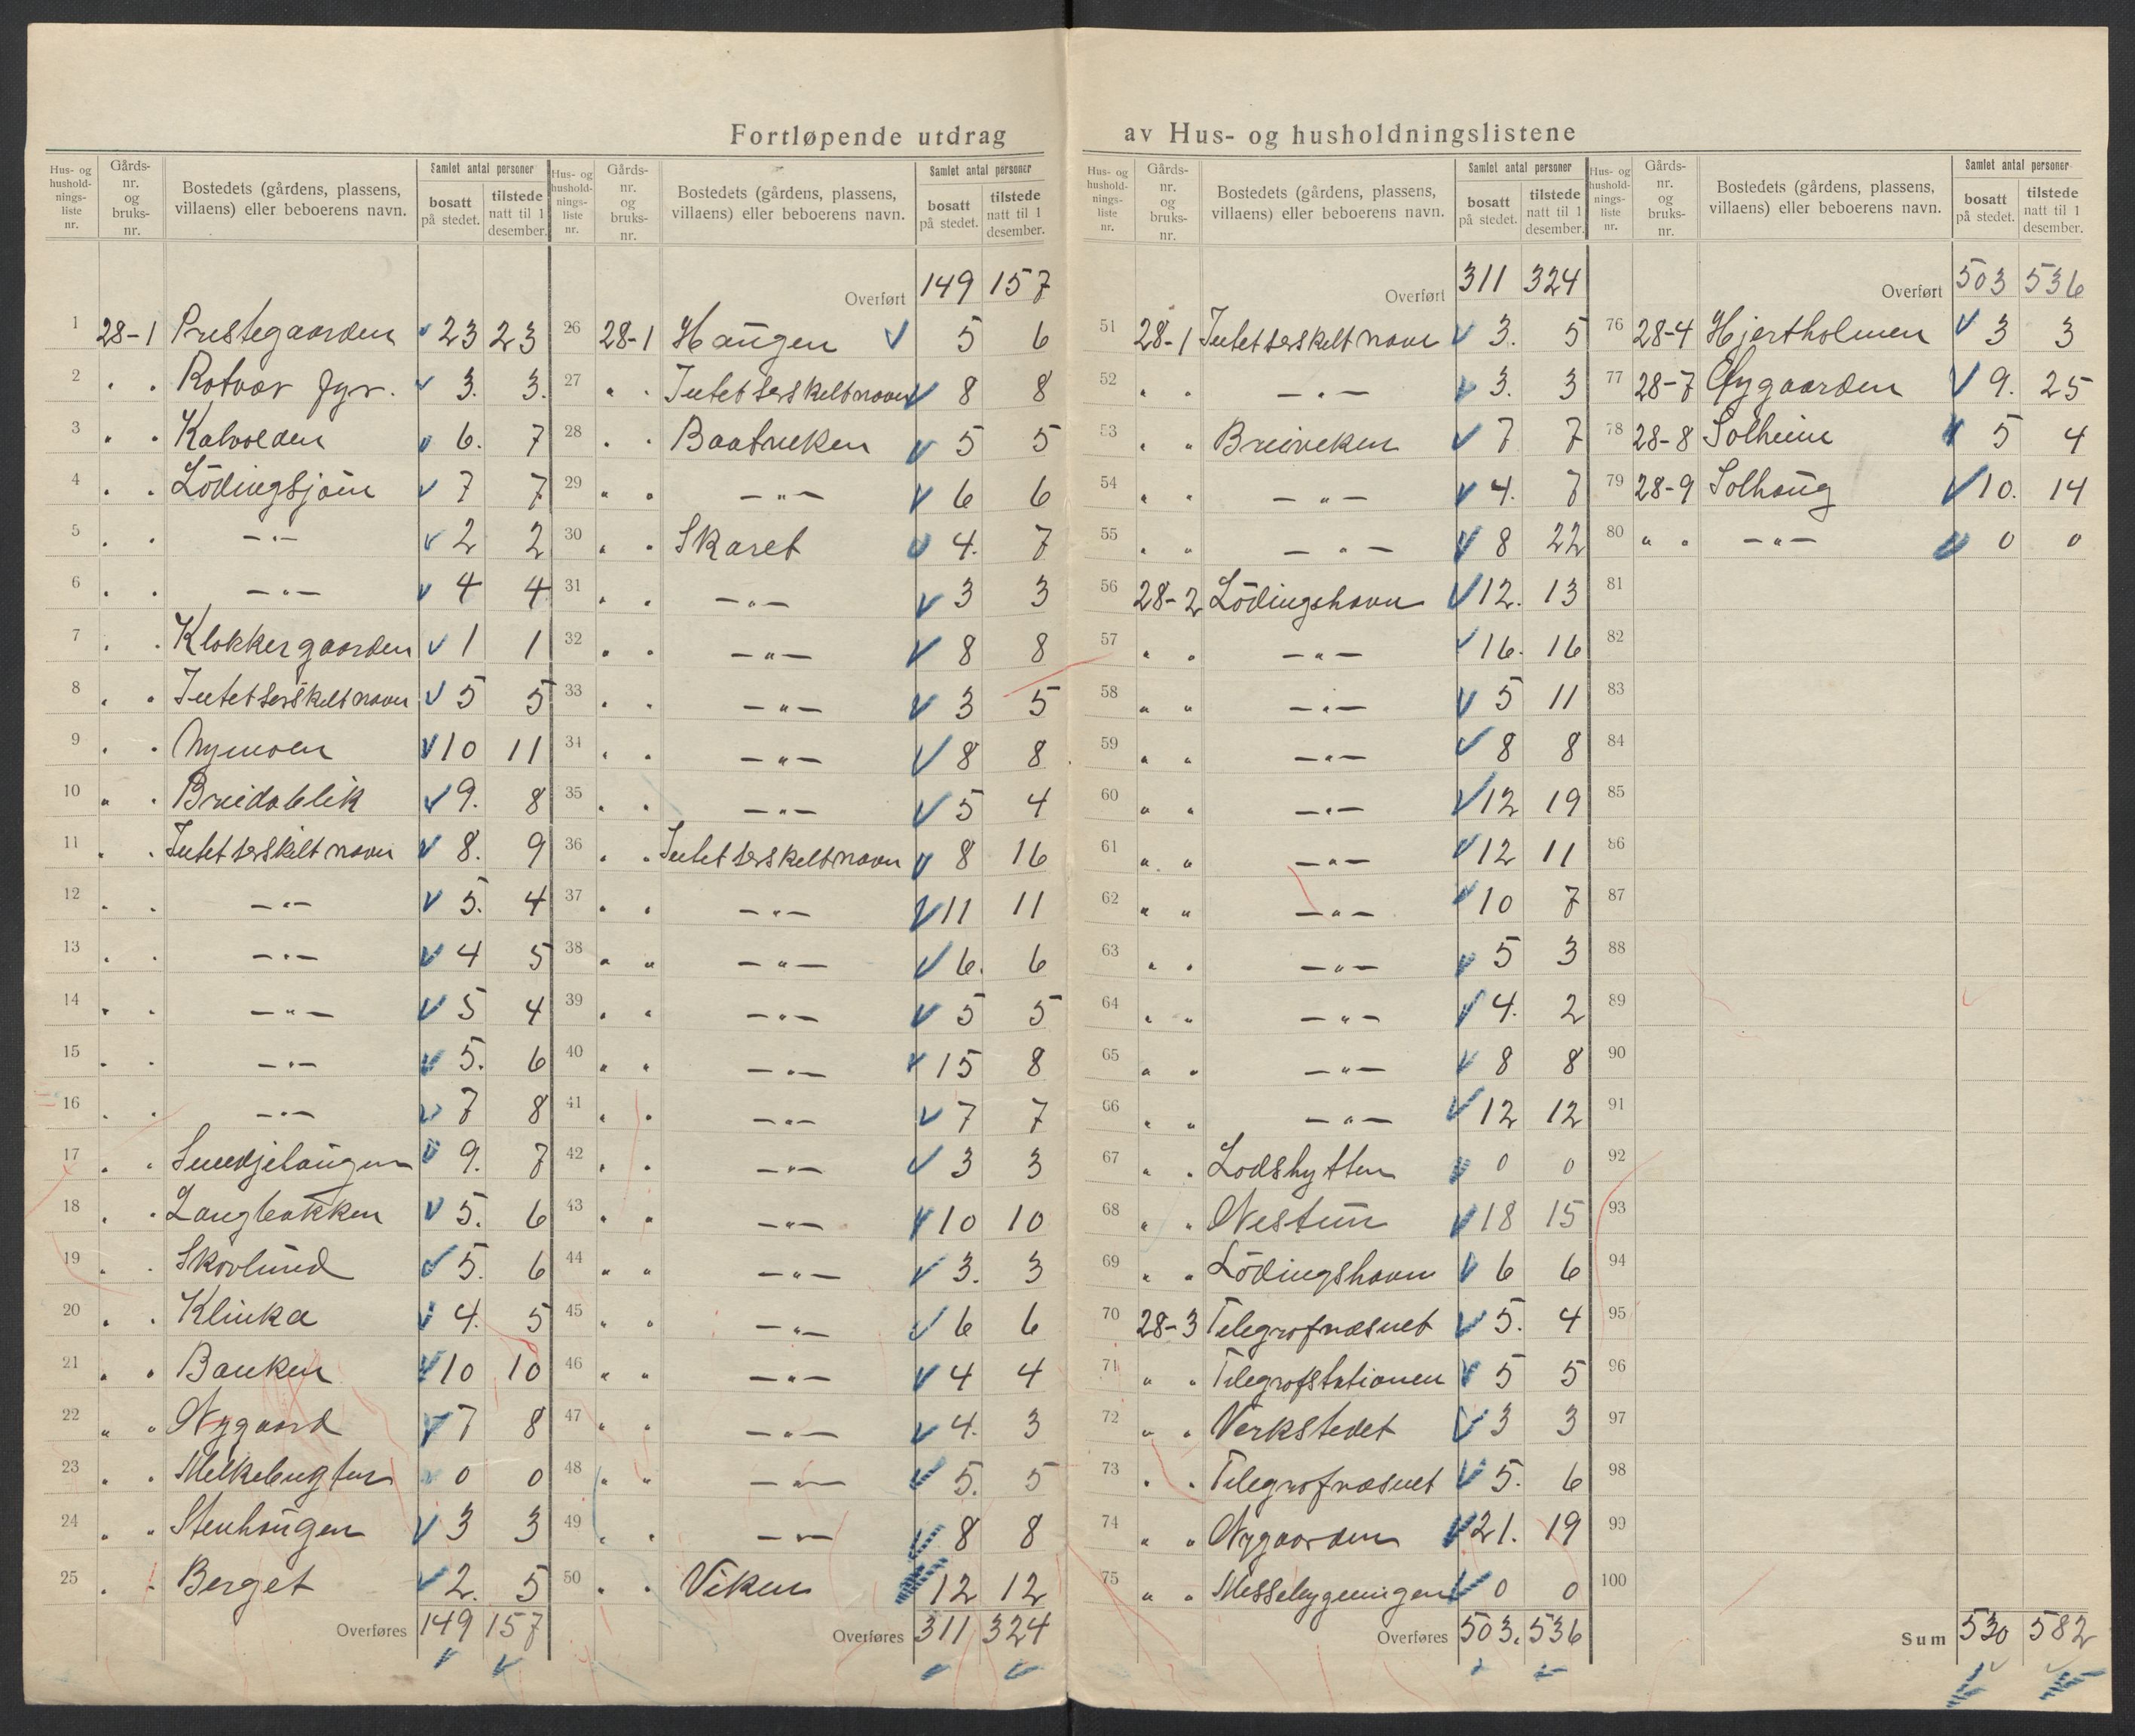 Fortløpende utdrag av Hus- og husholdningslistene
Hus- og hushold-nings-liste nr. | Gårds-nr. og bruks-nr. | Bostedets (gårdens, plassens, villaens) eller beboerens navn. | Samlet antal personer bosatt på stedet. | tilstede natt til 1 desember.
1 28-1 Prestegaarden 23 23
2 " " Rotvær fyr. 3. 3.
3 " " Kalvolden 6. 7
4 " " Lödingsjöen 7 7
5 " " —"— 2 2
6 " " —"— 4 4
7 " " Klokkergaarden 1 1
8 " " Intet særskelt navn 5 5
9 " " Nymoen 10 11
10 " " Breidablik 9. 8
11 " " Intet særskilt navn 8. 9
12 " " —"— 5. 4
13 " " —"— 4 5
14 " " —"— 5 4
15 " " —"— 5. 6
16 " " —"— 7 8
17 " " Smedjehaugen 9. 7
18 " " Langbakken 5. 6
19 " " Skovlund 5. 6
20 " " Klinka 4. 5
21 " " Banken 10 10
22 " " Nygaard 7 8
23 " " 0 0
24 " " Stenhaugen 3 3
25 " " Berget 2. 5
Overføres 149 157
Hus- og hushold-nings-liste nr. | Gårds-nr. og bruks-nr. | Bostedets (gårdens, plassens, villaens) eller beboerens navn. | Samlet antal personer bosatt på stedet. | tilstede natt til 1 desember.
Overført 149 157
26 28-1 Haugen 5 6
27 " " Intet særskelt navn 8 8
28 " " Baatviken 5 5
29 " " —"— 6 6
30 " " Skaret 4. 7
31 " " —"— 3 3
32 " " —"— 8 8
33 " " —"— 3 5
34 " " —"— 8 8
35 " " —"— 5 4
36 " " Intet særskelt navn 8 16
37 " " —"— 11 11
38 " " —"— 6. 6
39 " " —"— 5 5
40 " " —"— 15 8
41 " " —"— 7 7
42 " " —"— 3 3
43 " " —"— 10 10
44 " " —"— 3. 3
45 " " —"— 6 6
46 " " —"— 4 4
47 " " —"— 4. 3
48 " " —"— 5. 5
49 " " —"— 8 8
50 " " Viken 12 12
Overføres 311 324
Hus- og hushold-nings-liste nr. | Gårds-nr. og bruks-nr. | Bostedets (gårdens, plassens, villaens) eller beboerens navn. | Samlet antal personer bosatt på stedet. | tilstede natt til 1 desember.
Overført 311 324
51 28-1 Intet særskelt navn 3. 5
52 " " —"— 3. 3
53 " " Breiviken 7 7
54 " " —"— 4. 7
55 " " —"— 8 22
56 28-2 Lödingshavn 12. 13
57 " " —"— 16. 16
58 " " —"— 5 11
59 " " —"— 8 8
60 " " —"— 12 19
61 " " —"— 12 11
62 " " —"— 10 7
63 " " —"— 5 3
64 " " —"— 4. 2
65 " " —"— 8 8
66 " " —"— 12 12
67 " " Lodshytten 0 0
68 " " Nestun 18 15
69 " " Lödingshavn 6 6
70 28-3 Telegrafnæsset 5. 4
71 " " Telegrafstationen 5 5
72 " " Verkstedet 3 3
73 " " Telegrafnæsset 5. 6
74 " " Nygaarden 21. 19
75 " " Messebygningen 0 0
Overføres 503. 536
Hus- og hushold-nings-liste nr. | Gårds-nr. og bruks-nr. | Bostedets (gårdens, plassens, villaens) eller beboerens navn. | Samlet antal personer bosatt på stedet. | tilstede natt til 1 desember.
Overført 503 536
76 28-4 Hjertholmen 3 3
77 28-7 Nygaarden 9. 25
78 28-8 Solheim 5 4
79 28-9 Solhaug 10. 14
80 " " —"— 0 0
81
82
83
84
85
86
87
88
89
90
91
92
93
94
95
96
97
98
99
100
Sum 530 582